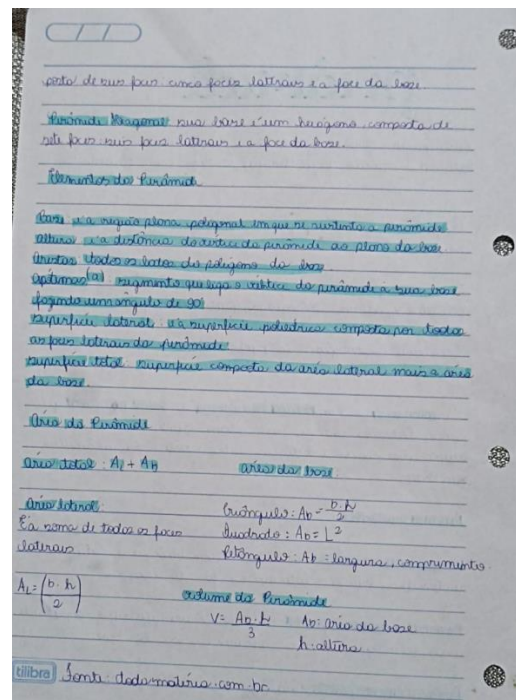 posta de seis faces cinco faces laterais e a face da base.
Pirâmide Hexagonal sua base é um hexágono, composta de
sete faces seis faces laterais e a face da base.
Elementos da Pirâmide
Base é a região plana poligonal em que se sustenta a pirâmide
altura é a distância do vértice da pirâmide ao plano da base
Arestas todos os lados do polígono da base
apótemas (a) segmento que liga o vértice da pirâmide à sua base
fazendo um ângulo de 90°
superfície lateral: é a superfície poliédrica composta por todas
as faces laterais da pirâmide
superfície total: superfície composta da área lateral mais a área
da base.
Área da Pirâmide
área total: Al + AB
área da base:
área lateral:
É a soma de todas as faces
laterais
Triângulo: Ab = b.h/2
Quadrado: Ab = L²
Retângulo: Ab = largura . comprimento
AL = (b.h/2)
volume da Pirâmide
V = Ab.h/3
Ab: área da base
h: altura
tilibra
Fonte: todamatéria.com.br